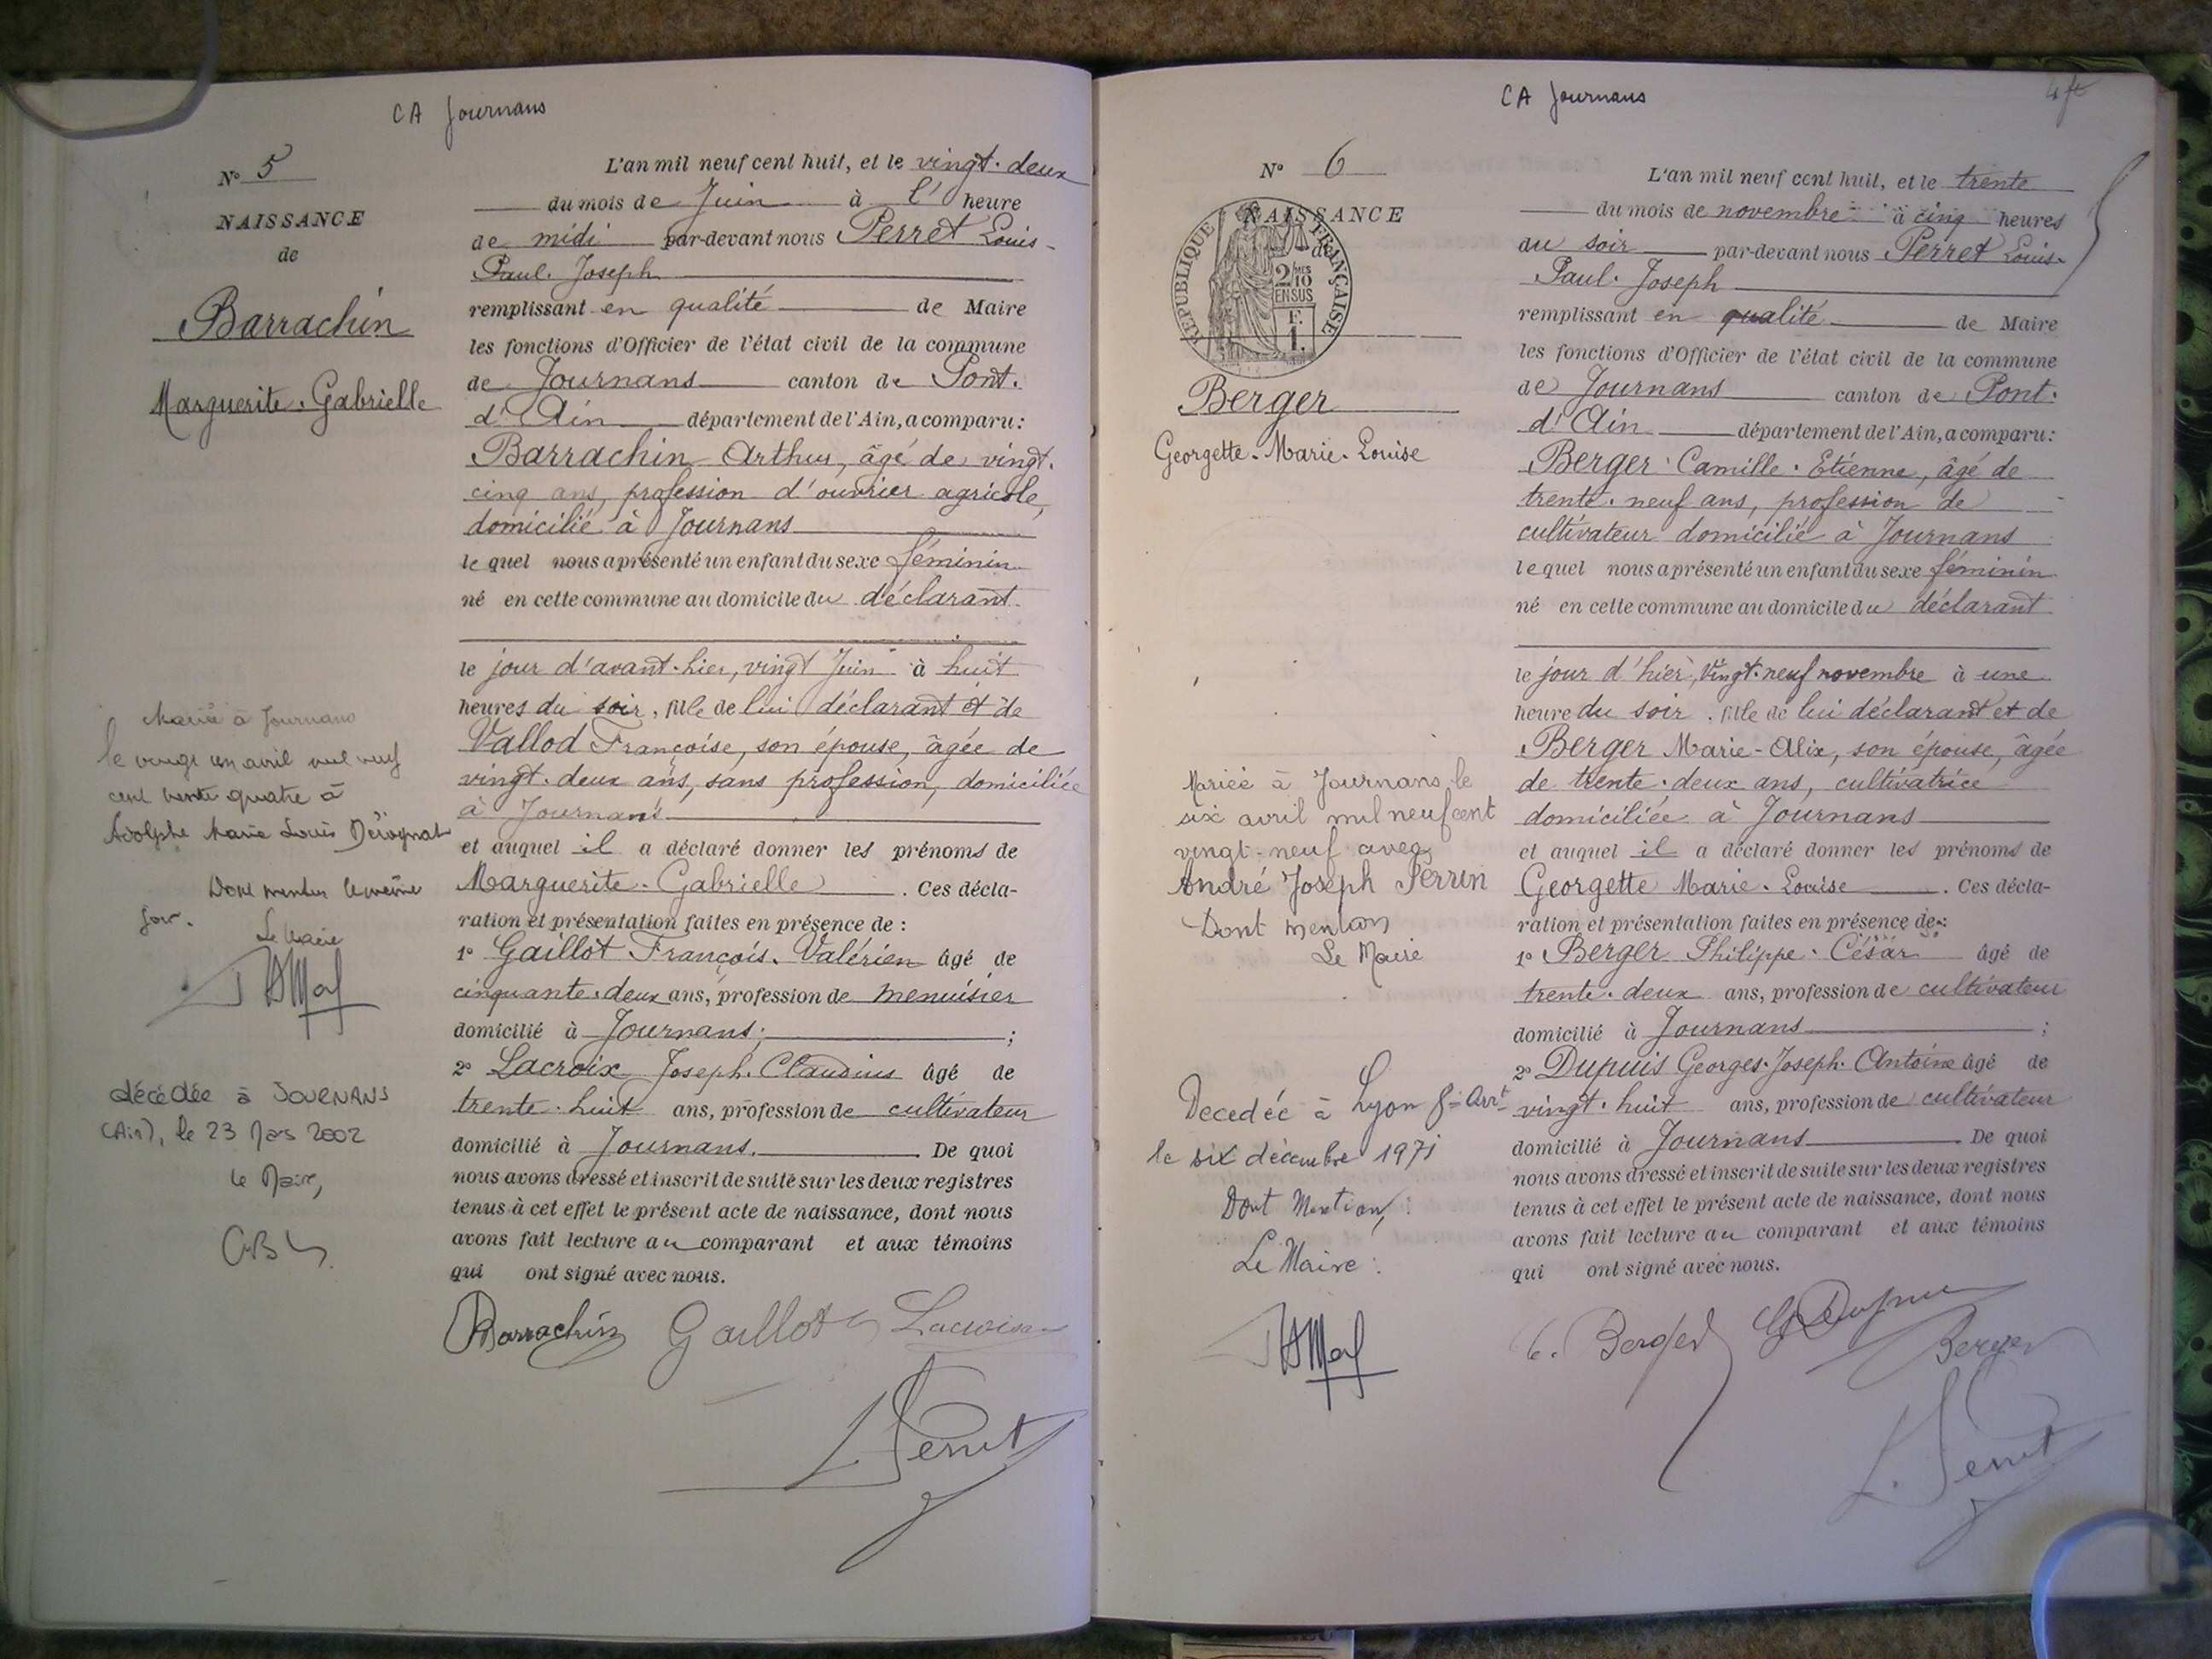 CA Journans
N° 5
NAISSANCE
de
Barrachin
Marguerite. Gabrielle
Mariée à Journans
le vingt un avril mil neuf
cent trente quatre à
Adolphe Marie Louis Dérognat
Dont mention le même
jour.
Le Maire
décédée à JOURNANS
(Ain), le 23 Mars 2002
Le Maire,
L'an mil neuf cent huit, et le vingt. deux
du mois de Juin à l' heure
de midi par-devant nous Perret Louis-
Paul. Joseph
remplissant en qualité de Maire
les fonctions d'Officier de l'état civil de la commune
de Journans canton de Pont.
d'Ain département de l'Ain, a comparu:
Barrachin Arthur, âgé de vingt.
cinq ans, profession d'ouvrier agricole,
domicilié à Journans
le quel nous a présenté un enfant du sexe féminin
né en cette commune au domicile du déclarant
le jour d'avant-hier, vingt Juin à huit
heures du soir, fille de lui déclarant et de
Vallod Françoise, son épouse, âgée de
vingt. deux ans, sans profession, domiciliée
à Journans
et auquel il a déclaré donner les prénoms de
Marguerite. Gabrielle. Ces décla-
ration et présentation faites en présence de :
1° Gaillot François. Valérien âgé de
cinquante. deux ans, profession de menuisier
domicilié à Journans; ;
2° Lacroix Joseph. Claudius âgé de
trente. huit ans, profession de cultivateur
domicilié à Journans. . De quoi
nous avons dressé et inscrit de suite sur les deux registres
tenus à cet effet le présent acte de naissance, dont nous
avons fait lecture au comparant et aux témoins
qui ont signé avec nous.
Barrachin Gaillot Lacroix
L Perret
CA Journans
N° 6
NAISSANCE
de
RÉPUBLIQUE FRANÇAISE
2/10 MES
EN SUS
F.
1.
Berger
Georgette. Marie. Louise
Mariée à Journans le
six avril mil neuf cent
vingt-neuf avec
André Joseph Perrin
Dont mention
Le Maire
Decedée à Lyon 8e Arrt
le six décembre 1971
Dont Mention,
Le Maire :
L'an mil neuf cent huit, et le trente
du mois de novembre à cinq heures
du soir par-devant nous Perret Louis.
Paul. Joseph
remplissant en qualité de Maire
les fonctions d'Officier de l'état civil de la commune
de Journans canton de Pont.
d'Ain département de l'Ain, a comparu:
Berger Camille. Etienne, âgé de
trente. neuf ans, profession de
cultivateur domicilié à Journans
le quel nous a présenté un enfant du sexe féminin
né en cette commune au domicile du déclarant
le jour d'hier, vingt. neuf novembre à une
heure du soir. fille de lui déclarant et de
Berger Marie-Alix, son épouse, âgée
de trente. deux ans, cultivatrice
domiciliée à Journans
et auquel il a déclaré donner les prénoms de
Georgette Marie. Louise. Ces décla-
ration et présentation faites en présence de :
1° Berger Philippe. César âgé de
trente. deux ans, profession de cultivateur
domicilié à Journans ;
2° Dupuis Georges. Joseph. Antoine âgé de
vingt. huit ans, profession de cultivateur
domicilié à Journans . De quoi
nous avons dressé et inscrit de suite sur les deux registres
tenus à cet effet le présent acte de naissance, dont nous
avons fait lecture au comparant et aux témoins
qui ont signé avec nous.
C. Berger G Dupuis
Berger
L. Perret